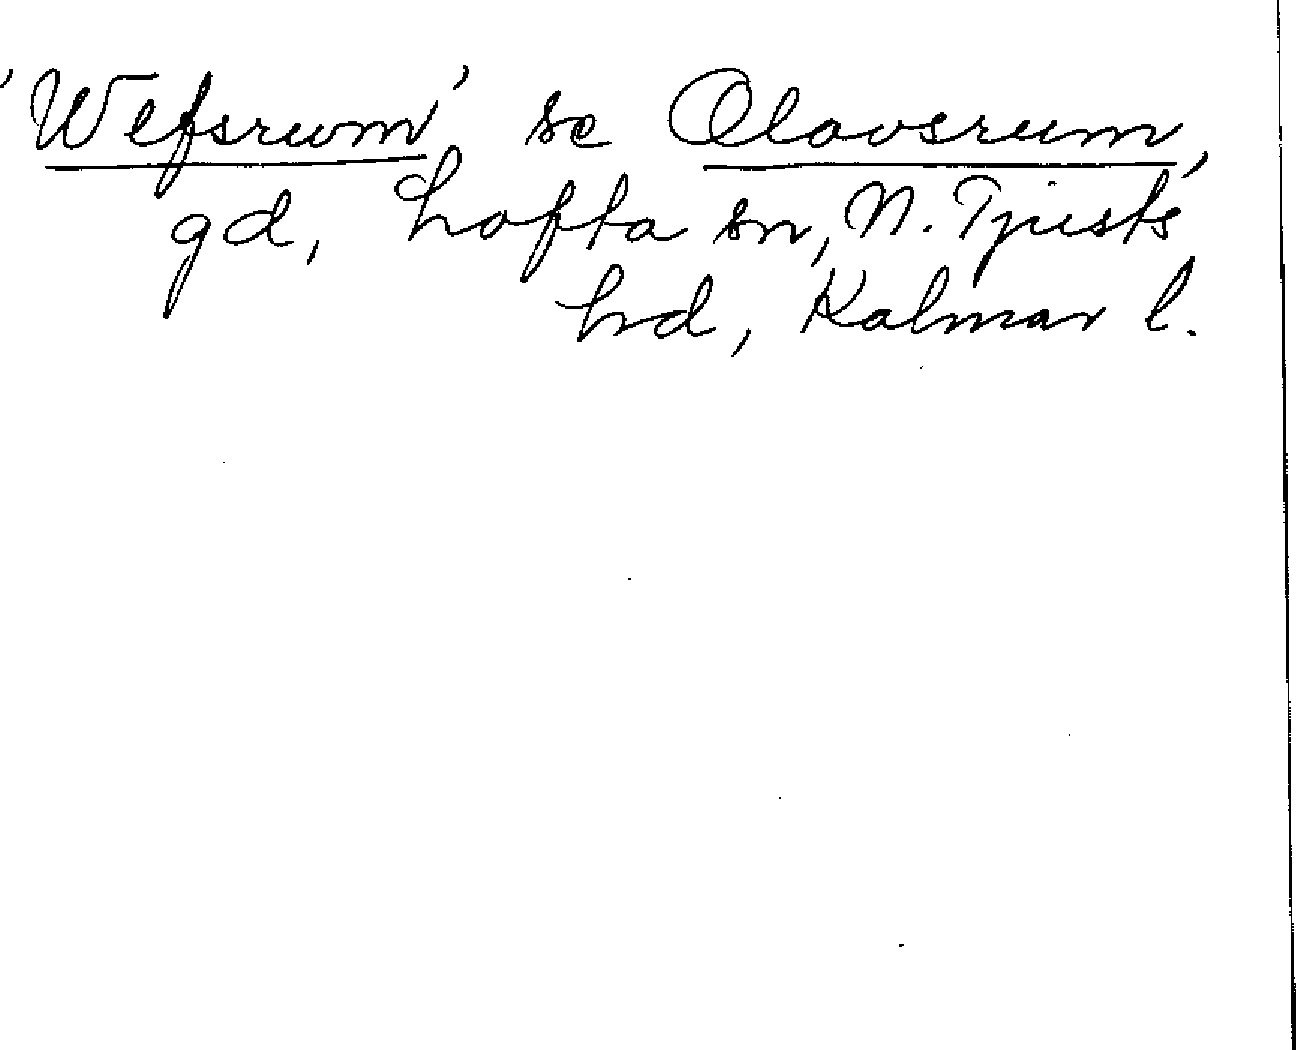 'Wefsrwm', se Olovsrum,
gd, Lofta sn, N. Tjusts
hd, Kalmar l.